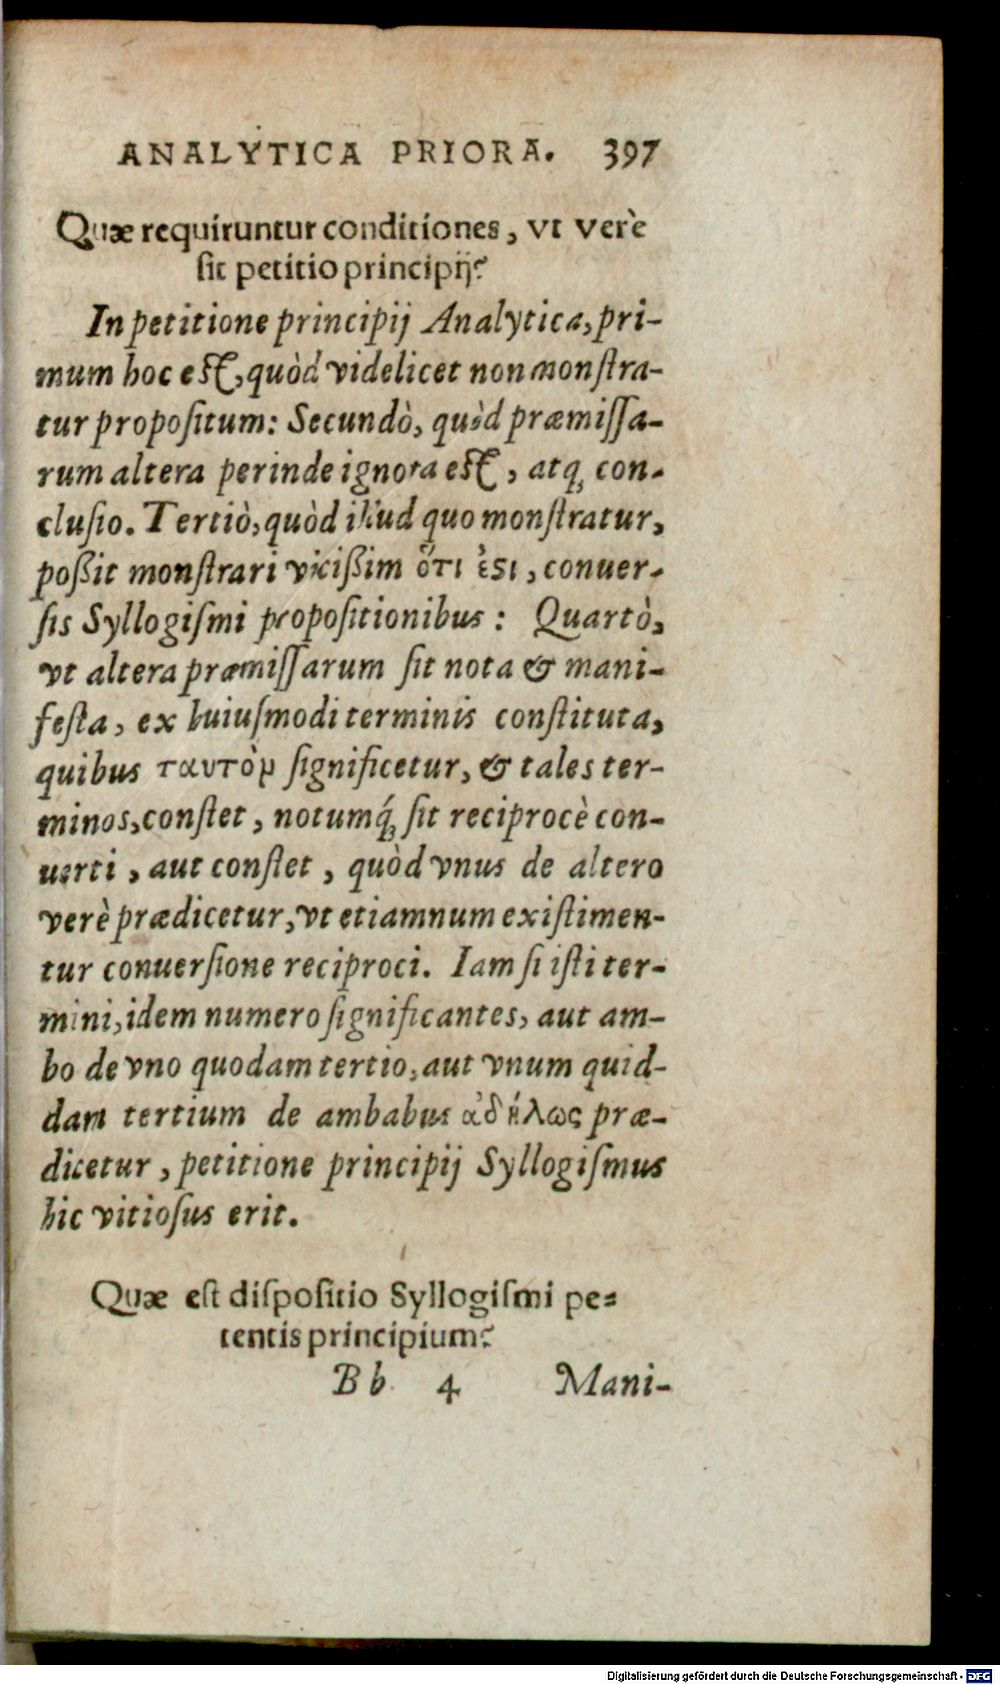 ANALYTICA PRIORA. 397
Quæ requiruntur conditiones, vt verè
ſit petitio principij?
In petitione principij Analytica, pri-
mum hoc eſt, quòd videlicet non monſtra-
tur propoſitum: Secundò, quòd præmiſſa-
rum altera perinde ignota eſt, atq; con-
cluſio. Tertiò, quòd illud quo monſtratur,
poßit monſtrari vicißim ὅτι ἐϛι, conuer-
ſis Syllogiſmi propoſitionibus: Quartò,
vt altera præmiſſarum ſit nota & mani-
feſta, ex huiuſmodi terminis conſtituta,
quibus ταυτὸμ ſignificetur, & tales ter-
minos, conſtet, notumq́; ſit reciprocè con-
uerti, aut conſtet, quòd vnus de altero
verè prædicetur, vt etiamnum exiſtimen-
tur conuerſione reciproci. Iam ſi iſti ter-
mini, idem numero ſignificantes, aut am-
bo de vno quodam tertio, aut vnum quid-
dam tertium de ambabus ἀδήλως præ-
dicetur, petitione principij Syllogiſmus
hic vitioſus erit.
Quæ eſt diſpoſitio Syllogiſmi pe-
tentis principium?
Bb 4 Mani-
Digitalisierung gefördert durch die Deutsche Forschungsgemeinschaft - DFG